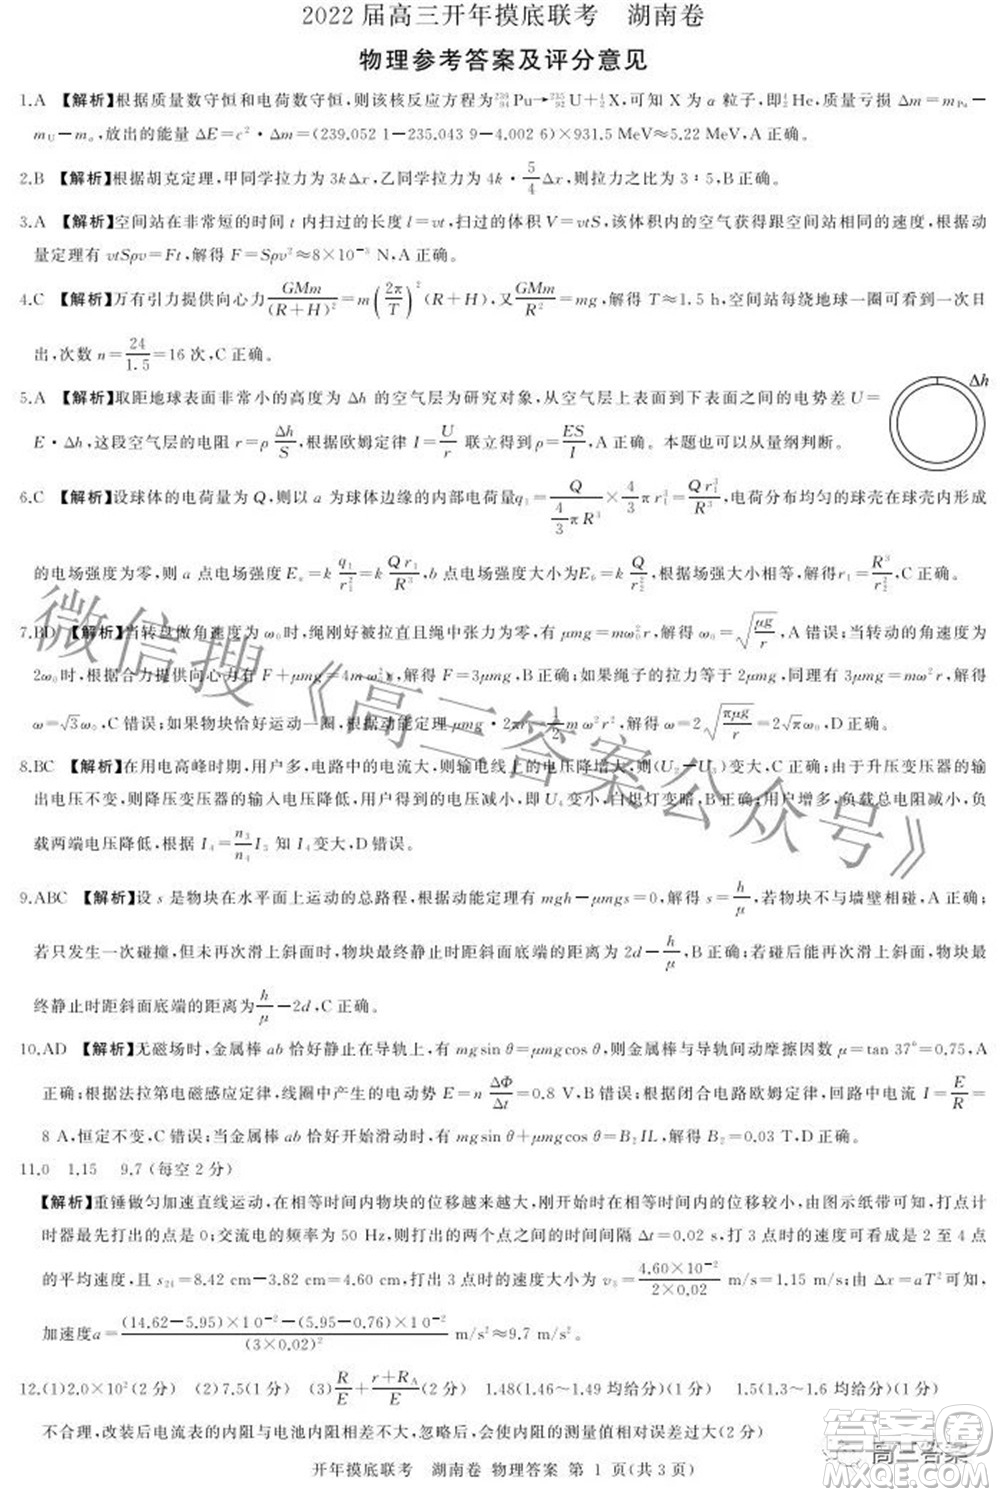 2022 届高三开年摸底联考　湖南卷
物理参考答案及评分意见
1.A 【解析】根据质量数守恒和电荷数守恒，则该核反应方程为²³⁹₉₄Pu→²³⁵₉₂U+⁴₂X，可知 X 为 α 粒子，即⁴₂He，质量亏损 Δm=m_Pu−
m_U−m_α，放出的能量 ΔE=c²·Δm=(239.052 1−235.043 9−4.002 6)×931.5 MeV≈5.22 MeV，A 正确。
2.B 【解析】根据胡克定理，甲同学拉力为 3kΔx，乙同学拉力为 4k·5/4Δx，则拉力之比为 3∶5，B 正确。
3.A 【解析】空间站在非常短的时间 t 内扫过的长度 l=vt，扫过的体积 V=vtS，该体积内的空气获得跟空间站相同的速度，根据动
量定理有 vtSρv=Ft，解得 F=Sρv²≈8×10⁻³ N，A 正确。
4.C 【解析】万有引力提供向心力 GMm/(R+H)²=m(2π/T)²(R+H)，又 GMm/R²=mg，解得 T≈1.5 h，空间站每绕地球一圈可看到一次日
出，次数 n=24/1.5=16 次，C 正确。
5.A 【解析】取距地球表面非常小的高度为 Δh 的空气层为研究对象，从空气层上表面到下表面之间的电势差 U=
Δh
E·Δh，这段空气层的电阻 r=ρ Δh/S，根据欧姆定律 I=U/r 联立得到 ρ=ES/I，A 正确。本题也可以从量纲判断。
6.C 【解析】设球体的电荷量为 Q，则以 a 为球体边缘的内部电荷量 q₁=Q/(4/3 πR³)×4/3πr₁³=Qr₁³/R³，电荷分布均匀的球壳在球壳内形成
的电场强度为零，则 a 点电场强度 E_a=k q₁/r₁²=k Qr₁/R³，b 点电场强度大小为 E_b=k Q/r₂²，根据场强大小相等，解得 r₁=R³/r₂²，C 正确。
7.BD 【解析】当转盘做角速度为 ω₀时，绳刚好被拉直且绳中张力为零，有 μmg=mω₀²r，解得 ω₀=√(μg/r)，A 错误；当转动的角速度为
2ω₀时，根据合力提供向心力有 F+μmg=4mω₀²r，解得 F=3μmg，B 正确；如果绳子的拉力为 2μmg，有 3μmg=mω²r，解得
ω=√3ω₀，C 错误；如果物块恰好运动一圈，根据动能定理 μmg·2πr=1/2mω²r²，解得 ω=2√(πμg/r)=2√πω₀，D 正确。
8.BC 【解析】在用电高峰时期，用户多，电路中的电流大，则输电线上的电压降增大，则(U₂−U₃)变大，A 错误；由于升压变压器的输
出电压不变，则降压变压器的输入电压降低，输出的电压减小，即 U₄变小，白炽灯变暗，B 正确；用户增多，负载总电阻减小，负
载两端电压降低，根据 I₄=n₃/n₄ I₃ 知 I₄变大，D 错误。
9.ABC 【解析】设 s 是物块在水平面上运动的总路程，根据动能定理有 mgh−μmgs=0，解得 s=h/μ，若物块不与墙壁相碰，A 正确；
若只发生一次碰撞，但未再次滑上斜面时，物块最终静止时距斜面底端的距离为 2d−h/μ，B 正确；若碰后能再滑上斜面，物块最
终静止时距斜面底端的距离为 h/μ−2d，C 正确。
10.AD 【解析】无磁场时，金属棒 ab 恰好静止在导轨上，有 mgsin θ=μmgcos θ，则金属棒与导轨间动摩擦因数 μ=tan 37°=0.75，A
正确；根据法拉第电磁感应定律，线圈中产生的电动势 E=n ΔΦ/Δt=0.8 V，B 错误；根据闭合电路欧姆定律，回路中电流 I=E/R=
8 A，恒定不变，C 错误；当金属棒 ab 恰好开始滑动时，有 mgsin θ+μmgcos θ=B₂IL，解得 B₂=0.03 T，D 正确。
11.0　1.15　9.7（每空 2 分）
【解析】重锤做匀加速直线运动，在相等时间内物块的位移越来越大，相邻相等时间内的位移增大，由图示纸带可知，打点计
时器最先打出的是 0；交流电的频率为 50 Hz，则打出的两个点之间的时间间隔 Δt=0.02 s，打 3 点时的速度可看成是 2 至 4 点
的平均速度，且 s₂₄=8.42 cm−3.82 cm=4.60 cm，打出 3 点时的速度大小为 v₃=4.60×10⁻²/(2×0.02) m/s=1.15 m/s；由 Δx=aT²可知，
加速度a=((14.62−5.95)×10⁻²−(5.95−0.76)×10⁻²)/(3×0.02)² m/s²≈9.7 m/s²。
12.(1)2.0×10²(2 分)　(2)7.5(1 分)　(3)R/E+(r+R_A)/E(2 分)　1.48(1.46~1.49 均给分)(2 分)　1.5(1.3~1.6 均给分)(2 分)
不合理，改装后电流表的内阻与电池内阻相差太大，忽略电流表内阻，使电池内阻的测量误差过大(2 分)
开年摸底联考　湖南卷 物理答案 第 1 页(共 3 页)
微信搜《高三答案公众号》
答案圈
高三答案
MXQE.COM